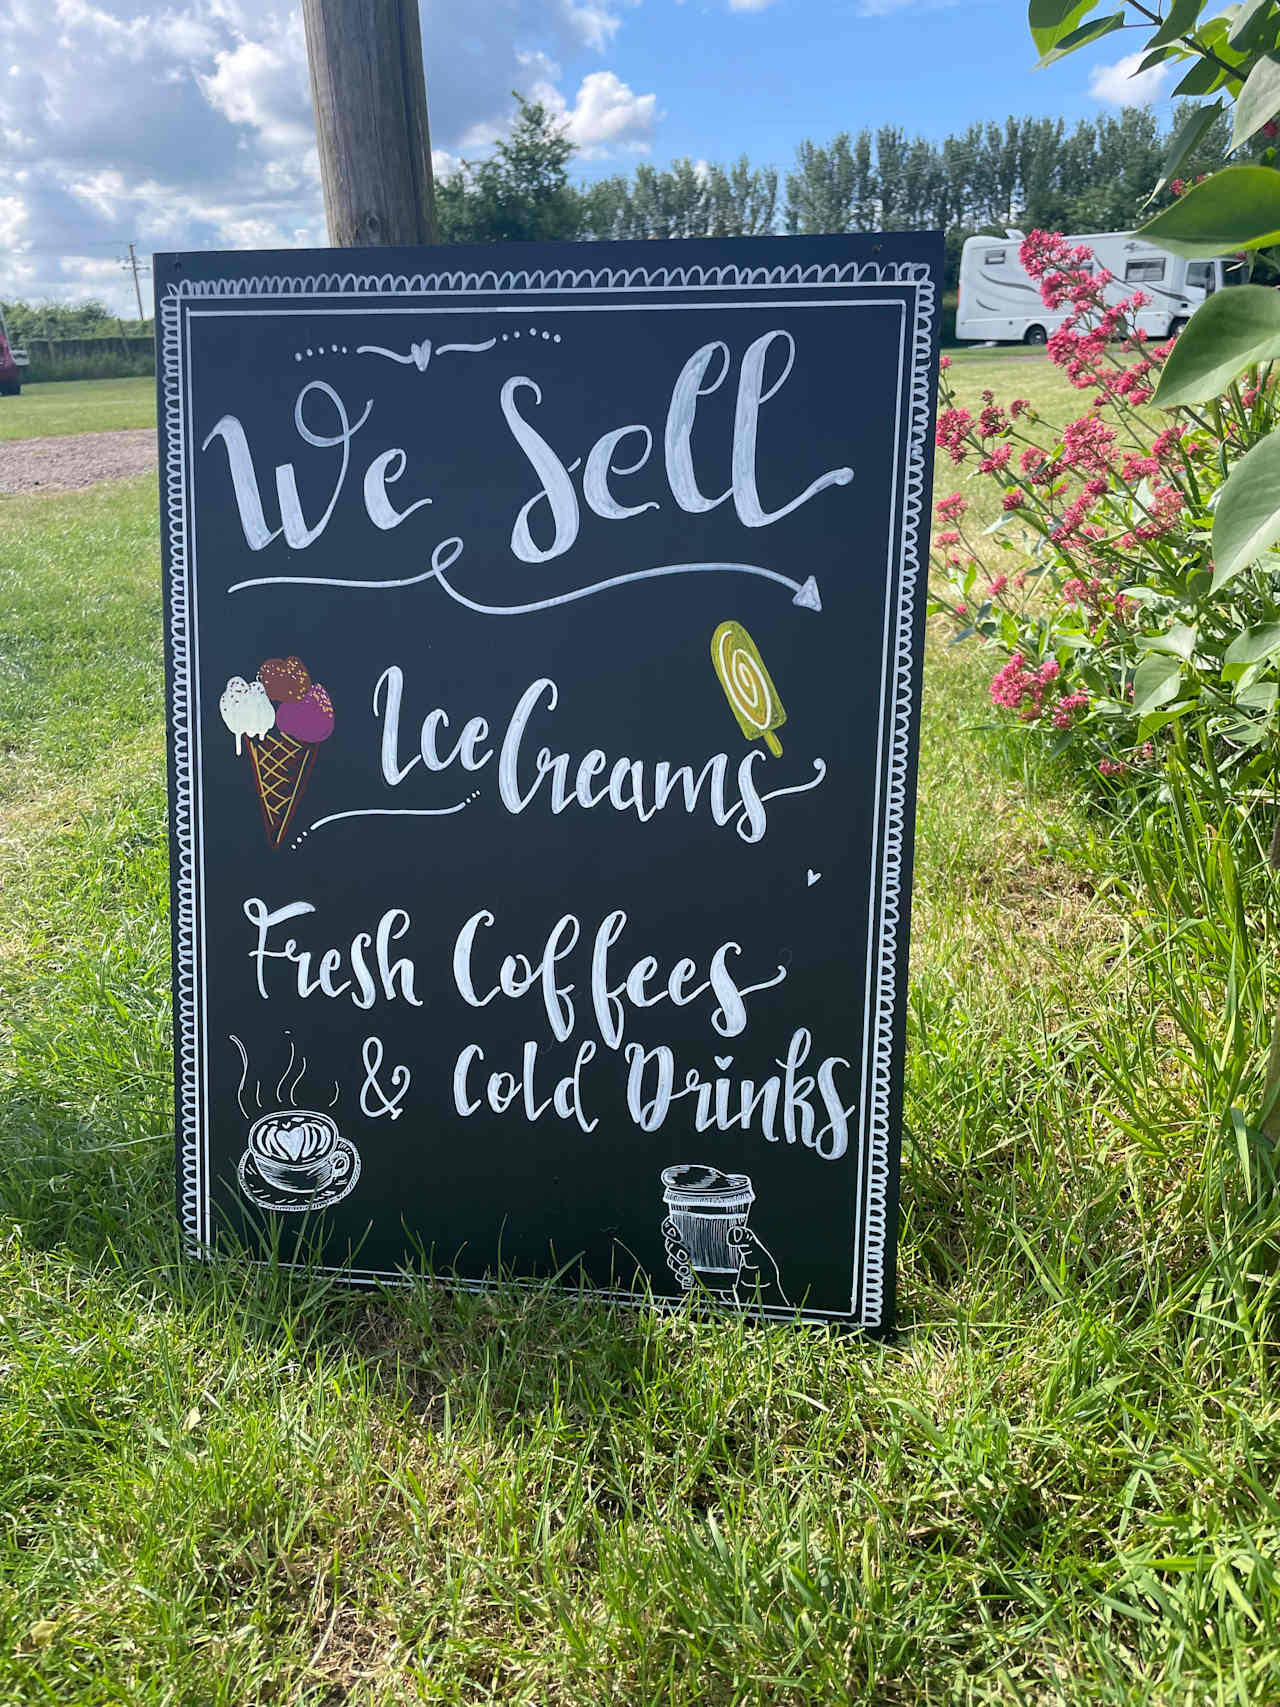 We Sell
Ice Creams
Fresh Coffees
& Cold Drinks